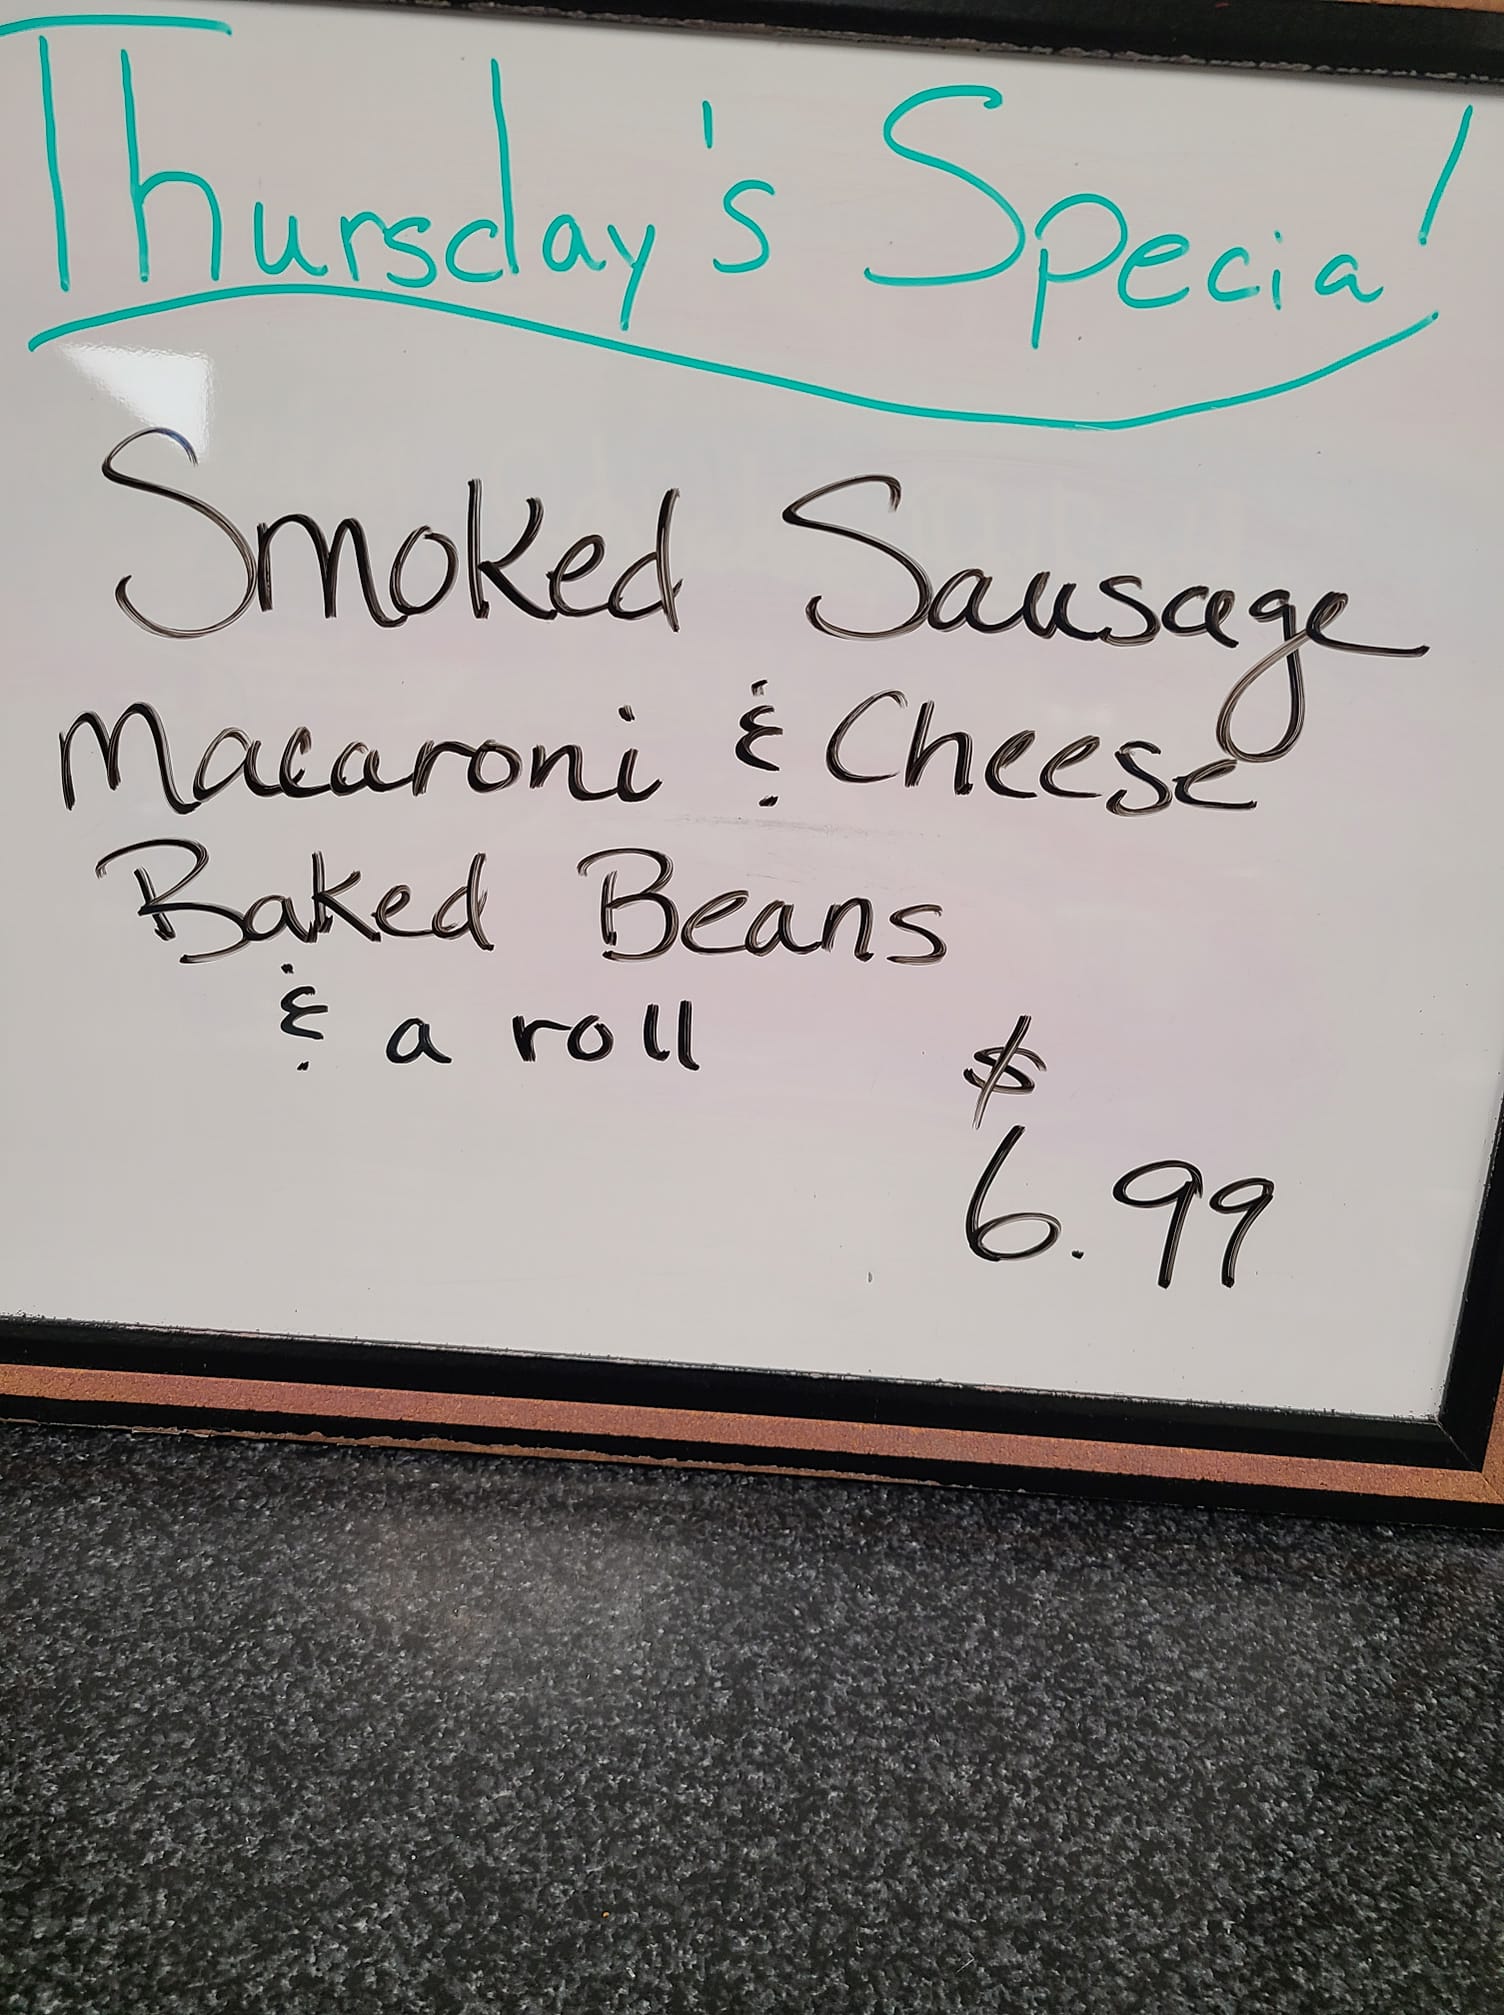 Thursday's Special
Smoked Sausage
Macaroni & Cheese
Baked Beans
& a roll
$
6.99